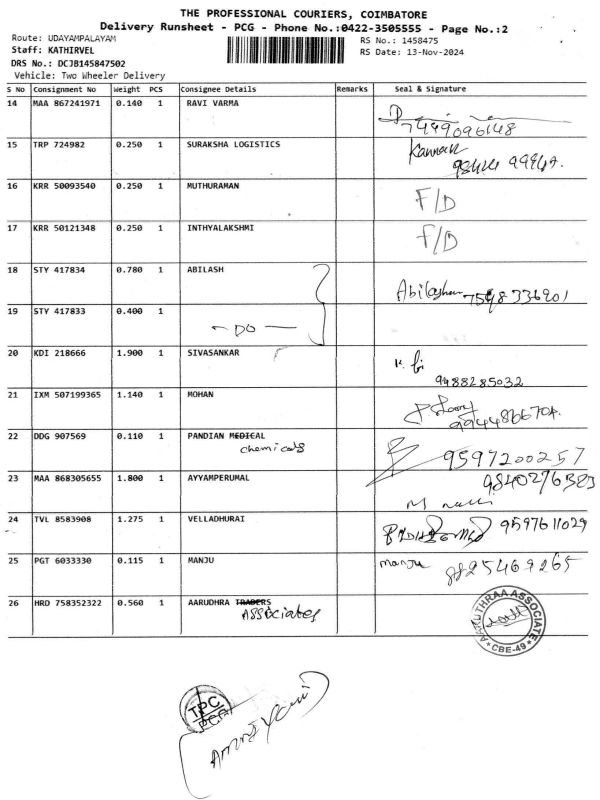 THE PROFESSIONAL COURIERS, COIMBATORE
Delivery Runsheet - PCG - Phone No.:0422-3505555 - Page No.:2
Route: UDAYAMPALAYAM
RS No.: 1458475
Staff: KATHIRVEL
RS Date: 13-Nov-2024
DRS No.: DCJB145847502
Vehicle: Two Wheeler Delivery
S No Consignment No Weight PCS Consignee Details Remarks Seal & Signature
14 MAA 867241971 0.140 1 RAVI VARMA
7449096148
15 TRP 724982 0.250 1 SURAKSHA LOGISTICS Kannan
16 KRR 50093540 0.250 1 MUTHURAMAN F/D
17 KRR 50121348 0.250 1 INTHYALAKSHMI F/D
18 STY 417834 0.780 1 ABILASH
19 STY 417833 0.400 1
- DO -
20 KDI 218666 1.900 1 SIVASANKAR
9488285032
21 IXM 507199365 1.140 1 MOHAN
22 DDG 907569 0.110 1 PANDIAN MEDICAL 9597200257
chemicals
23 MAA 868305655 1.800 1 AYYAMPERUMAL 9840276383
24 TVL 8583908 1.275 1 VELLADHURAI 9597611029
25 PGT 6033330 0.115 1 MANJU manju 8825469265
26 HRD 758352322 0.560 1 AARUDHRA TRADERS
Associates
AARUTHRAA ASSOCIATE
CBE-49
TPC
PCG